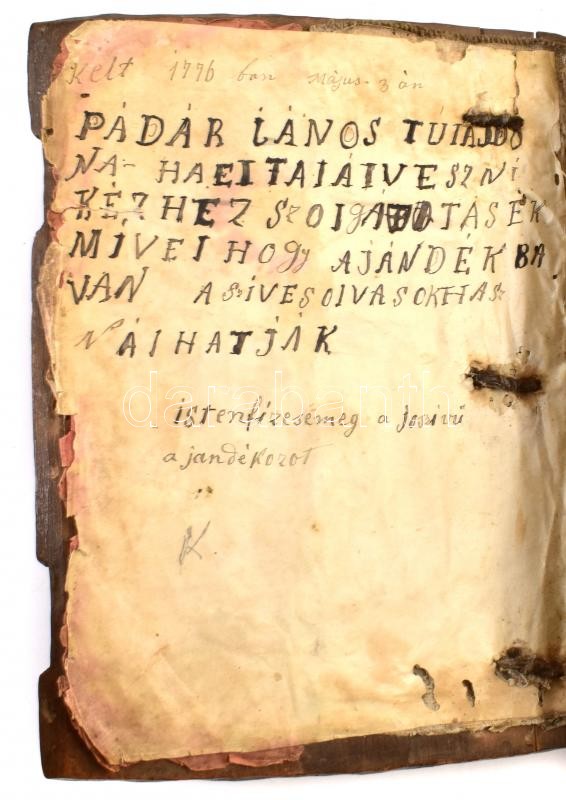 Kelt 1776 ban Május. 3 án
PÁDÁR IÁNOS TÚIAJDO
NA- HAEITAIÁIVESZNI
KÉZHEZ SZOIGÁTATÁSÉK
MÍVEIHOGY AJÁNDÉKBA
VAN A SZÍVESOIVASOKHASZ
NÁIHATJÁK
istenfizesémeg a joszivü
ajandékozot
K
darabanth